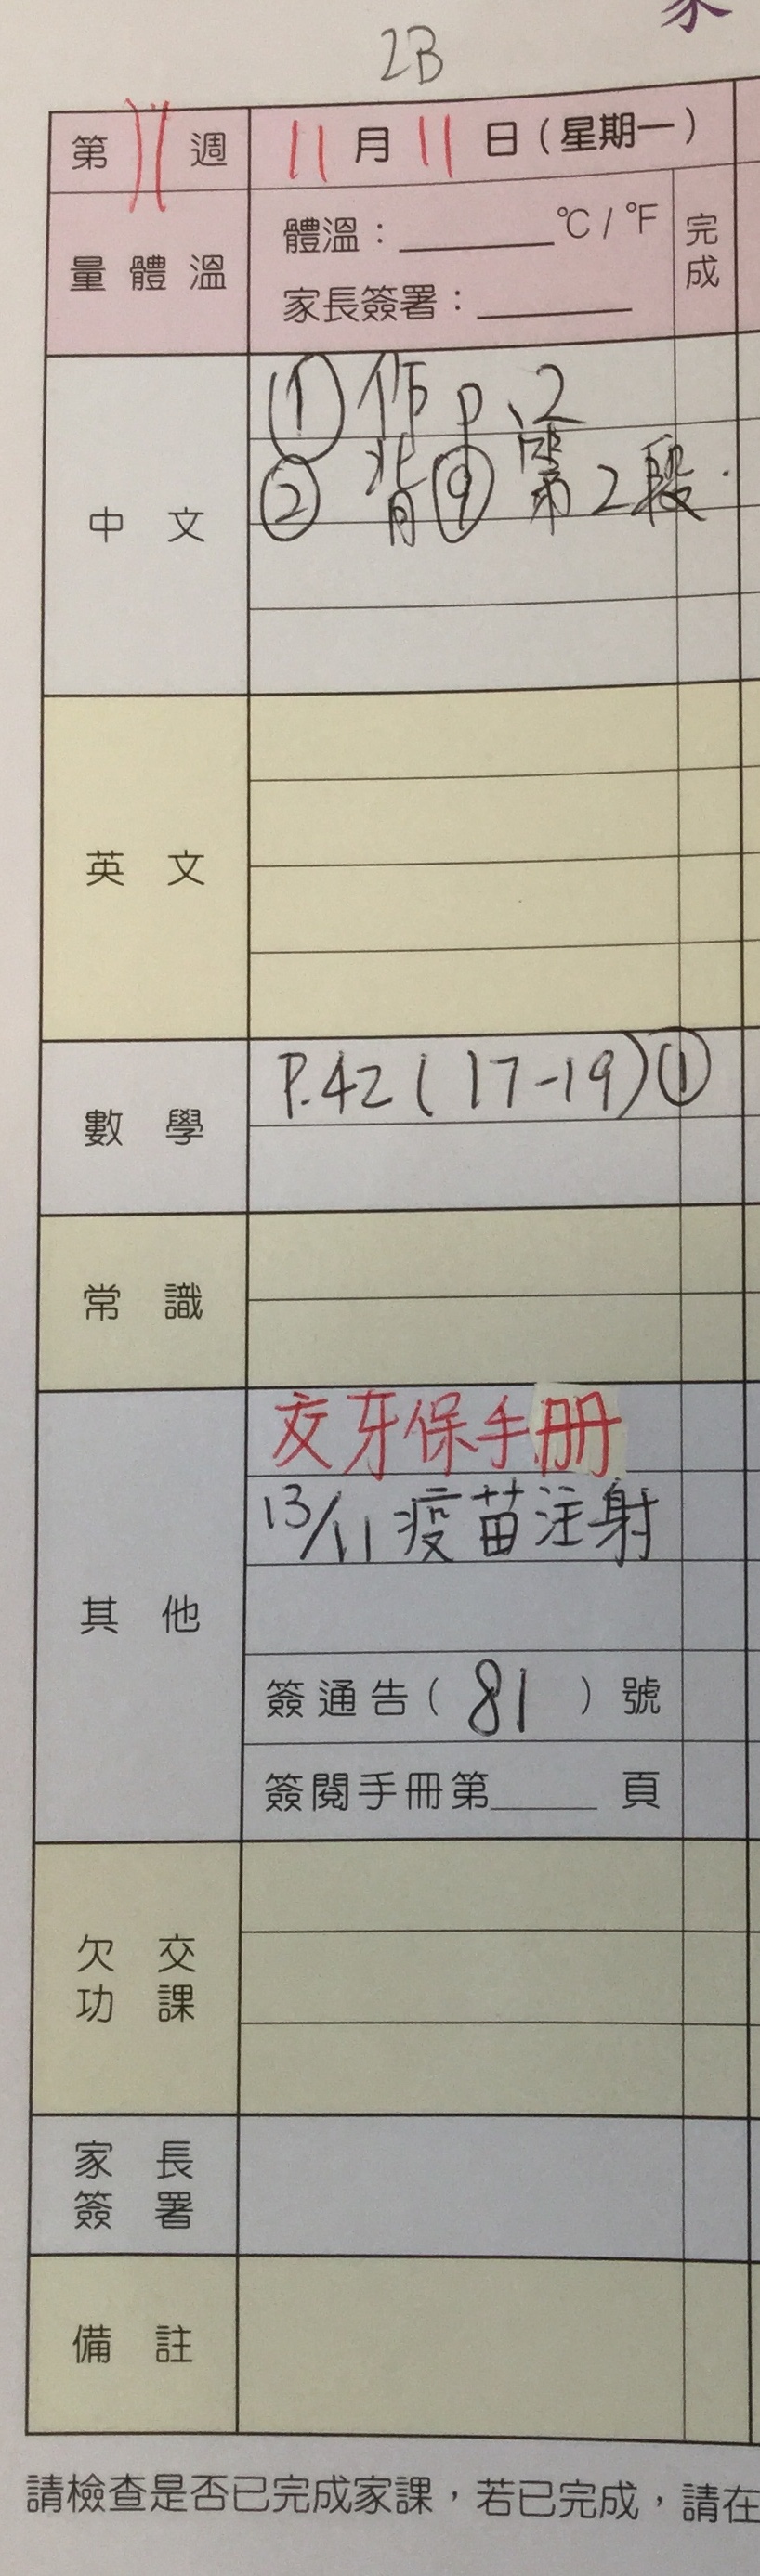 2B
第11週 11月11日(星期一)
量體溫 體溫：______°C/°F 完成
家長簽署：______
中文 ① 作 p.2
② 背⑨ 第2段.
英文
數學 P.42(17-19)①
常識
其他 交牙保手冊
13/11疫苗注射
簽通告( 81 )號
簽閱手冊第_____頁
欠交
功課
家長
簽署
備註
請檢查是否已完成家課，若已完成，請在